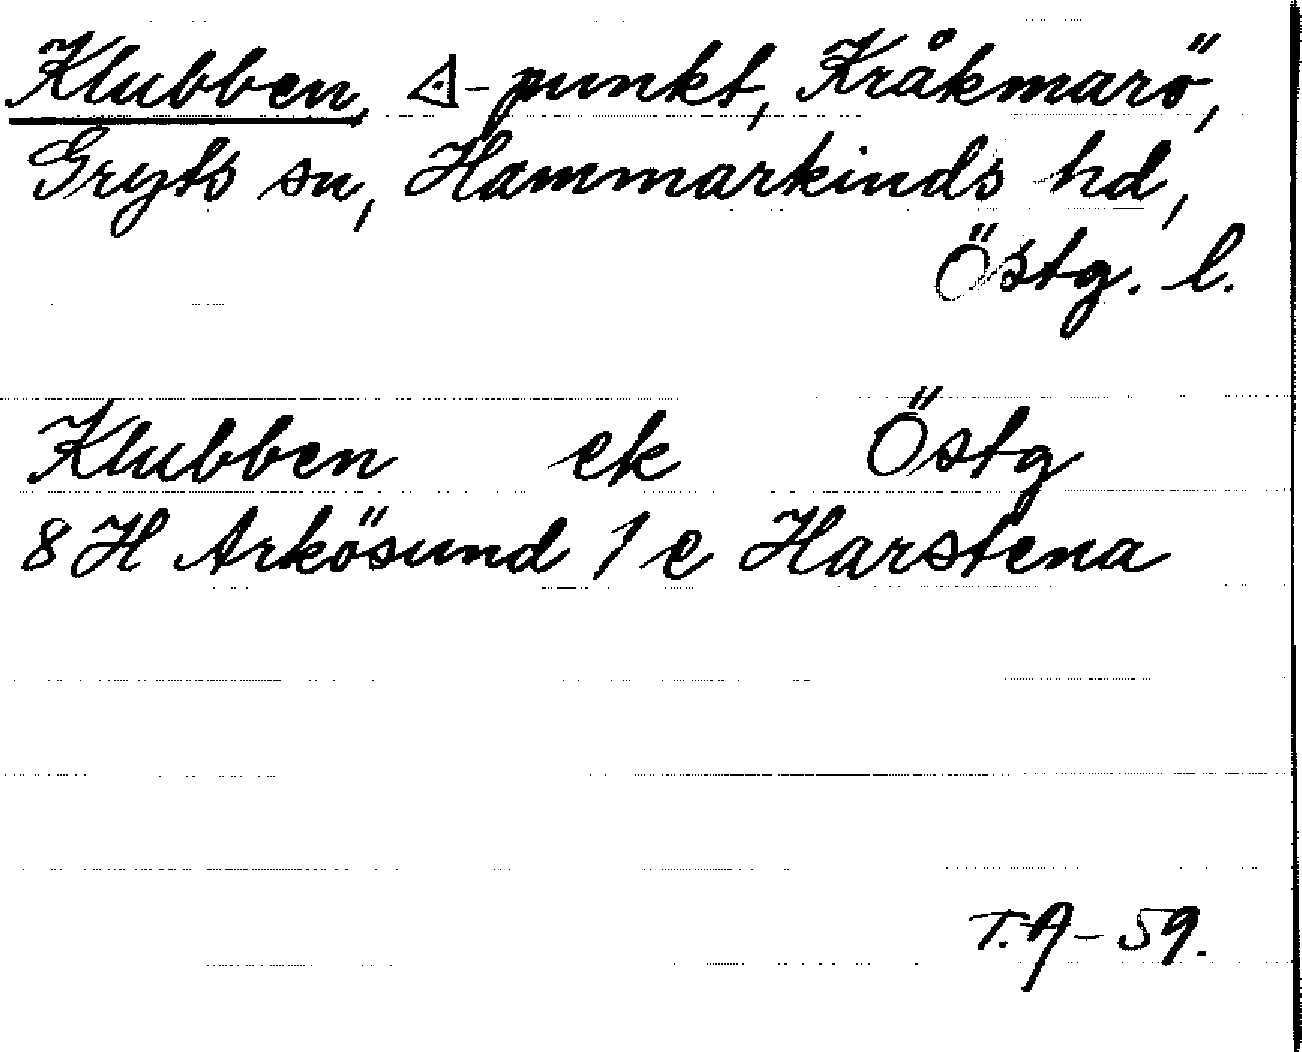 Klubben, ⊿-punkt, Kråkmarö,
Gryts sn, Hammarkinds hd,
Östg. l.
Klubben ek Östg
8 H Arkösund 1 e Harstena
T.A - 59.